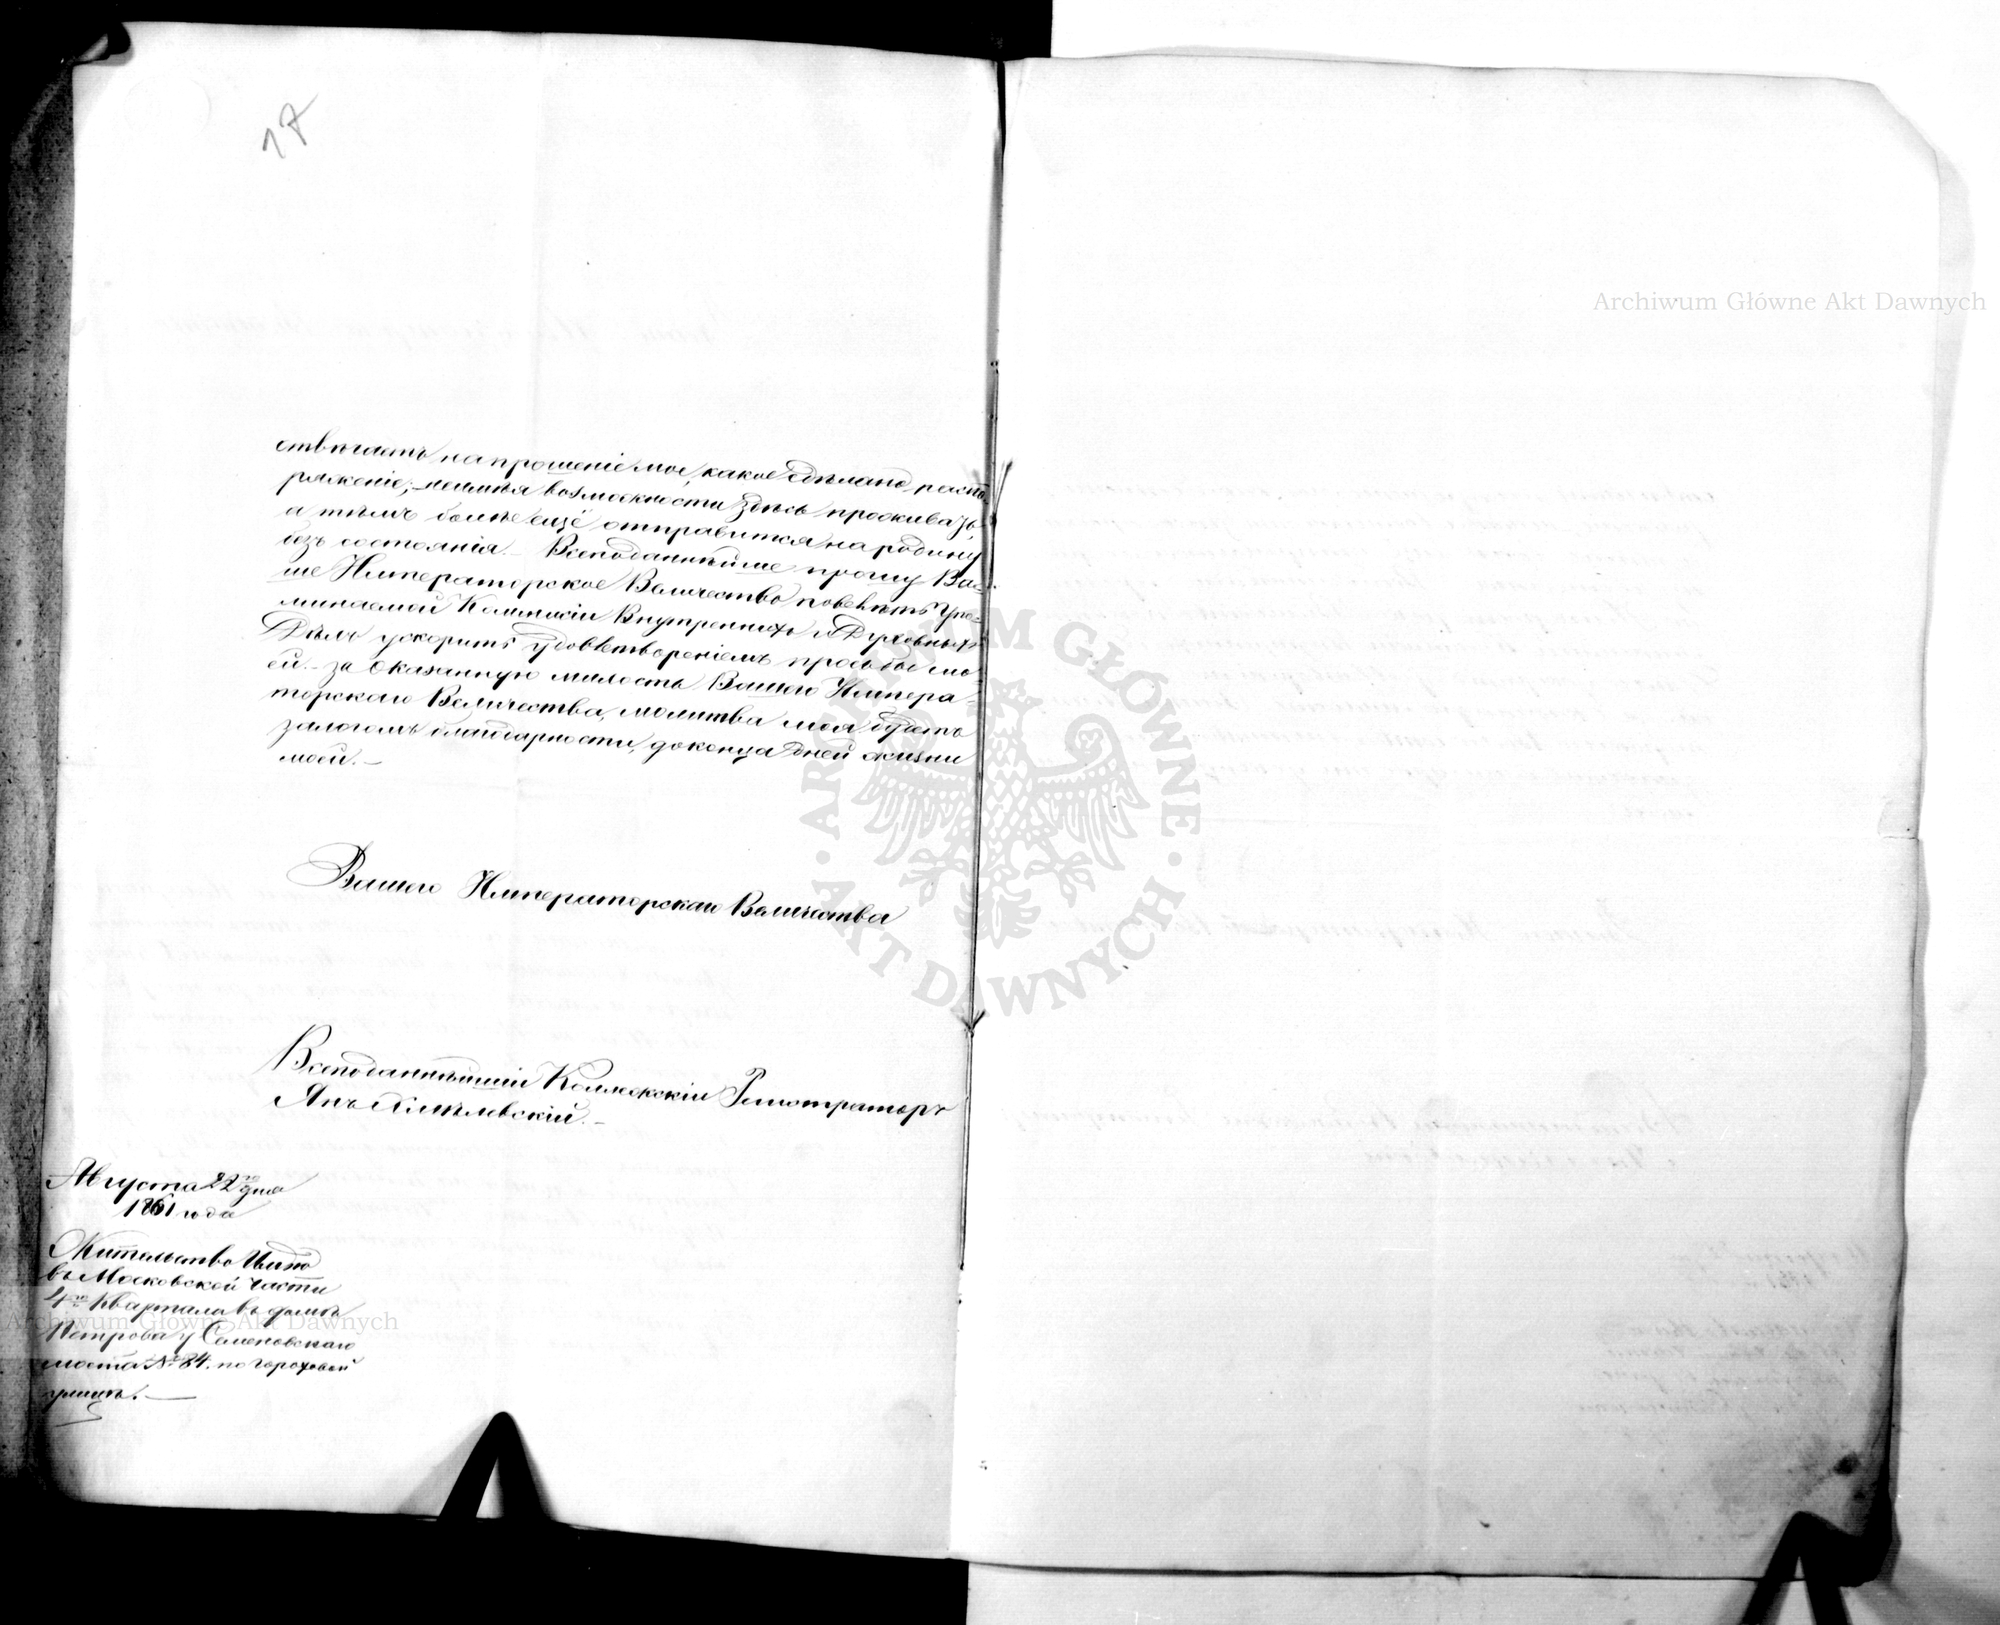 17
отвѣчаетъ на прошеніе мое, какое сдѣлано распо-
ряженіе; неимѣя возможности здѣсь проживать,
а тѣмъ болѣе ещё отправится на родину
безъ состоянія. – Всеподаннѣйше прошу Ва-
ше Императорское Величество повелѣть Упо-
минаемой Коммисіи Внутреннихъ и Духовныхъ
Дѣлъ ускорить удовлетвореніемъ прозьбы мо-
ей. – за Оказанную милость Вашего Импера-
торскаго Величества, молитва моя будетъ
залогомъ благодарности, до конца дней жизни
моей. –
Вашего Императорскаго Величества
Всеподаннѣйшій Коллежскій Регистраторъ
Янъ
Августа 22го дня
1861 года
Жительство Имѣю
въ Московской части
4го Квартала въ домѣ
Петрова у Семеновскаго
моста № 84. по Гороховой
улицѣ. –
Archiwum Główne Akt Dawnych
Archiwum Główne Akt Dawnych
ARCHIWUM GŁÓWNE AKT DAWNYCH